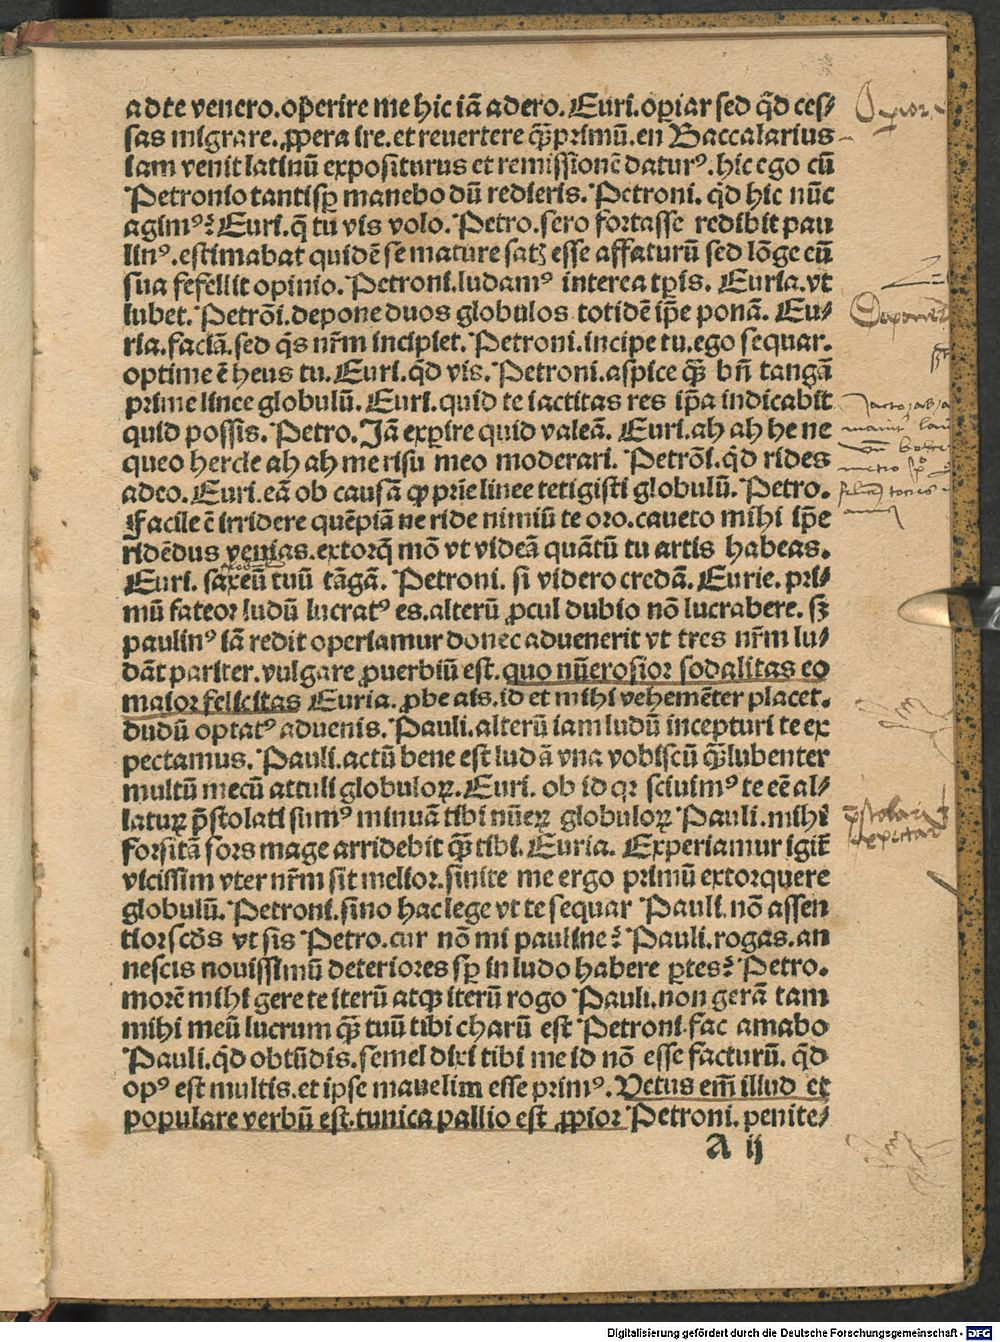 ad te venero.oꝑerire me hic iā adero. Euri.opiar sed qd̄ ces⸗
sas migrare.ꝓpera ire.et reuertere qꝫ̄primū.en Baccalarius
iam venit latinū expositurus et remissionē daturꝰ.hic ego cū
Petronio tantisꝑ manebo dū redieris. Petroni. qd̄ hic nūc
agimꝰ? Euri.q̄ tu vis volo. Petro.sero fortasse redibit pau
linꝰ.estimabat quidē se mature satꝫ esse affaturū sed lōge eū
sua fefellit opinio. Petroni.ludamꝰ interea tp̄is. Euria.vt
lubet. Petrōi.depone duos globulos totidē ip̄e ponā. Eu⸗
ria.faciā.sed qs̄ nr̄m incipiet. Petroni.incipe tu.ego sequar.
optime ē heus tu. Euri.qd̄ vis. Petroni.aspice qꝫ̄ bn̄ tangā
prime linee globulū. Euri.quid te iactitas res ip̄a indicabit
quid possis. Petro. Jā exꝑire quid valeā. Euri.ah ah he ne
queo hercle ah ah me risu meo moderari. Petrōi.qd̄ rides
adeo. Euri.eā ob causā ꝙ prīe linee tetigisti globulū. Petro.
Facile ē irridere quēpiā ne ride nimiū te oro.caueto mihi ip̄e
ridēdus venias.extorq̄ mō vt videā quātū tu artis habeas.
Euri. saxeū tuū tāgā. Petroni. si videro credā. Eurie. pri⸗
mū fateor ludū lucratꝰ es.alterū ꝓcul dubio nō lucrabere. sꝫ
paulinꝰ iā redit operiamur donec aduenerit vt tres nr̄m lu⸗
dāt pariter.vulgare ꝓuerbiū est.quo nūerosior sodalitas eo
maior felicitas Euria. ꝓbe ais.id et mihi vehemēter placet.
dudū optatꝰ aduenis. Pauli.alterū iam ludū incepturi te ex
pectamus. Pauli.actū bene est ludā vna vobiscū qꝫ̄lubenter
multū mecū attuli globuloꝝ. Euri. ob id qꝛ sciuimꝰ te eē al⸗
laturꝝ p̄stolati sumꝰ minuā tibi nūeꝝ globuloꝝ Pauli.mihi
forsitā sors mage arridebit qꝫ̄ tibi. Euria. Experiamur igit̄
vicissim vter nr̄m sit melior.sinite me ergo primū extorquere
globulū. Petroni.sino hac lege vt te sequar Pauli.nō assen
tior scd̄s vt sis Petro.cur nō mi pauline? Pauli.rogas.an
nescis nouissimū deteriores sꝑ in ludo habere ꝑtes? Petro.
morē mihi gere te iterū atqꝫ iterū rogo Pauli.non gerā tam
mihi meū lucrum qꝫ̄ tuū tibi charū est Petroni.fac amabo
Pauli.qd̄ obtūdis.semel dixi tibi me id nō esse facturū. qd̄
opꝰ est multis.et ipse mauelim esse primꝰ. Vetus em̄ illud et
populare verbū est.tunica pallio est ꝓpior Petroni. penite⸗
A ij
p̄stolari
expectare
Digitalisierung gefördert durch die Deutsche Forschungsgemeinschaft - DFG